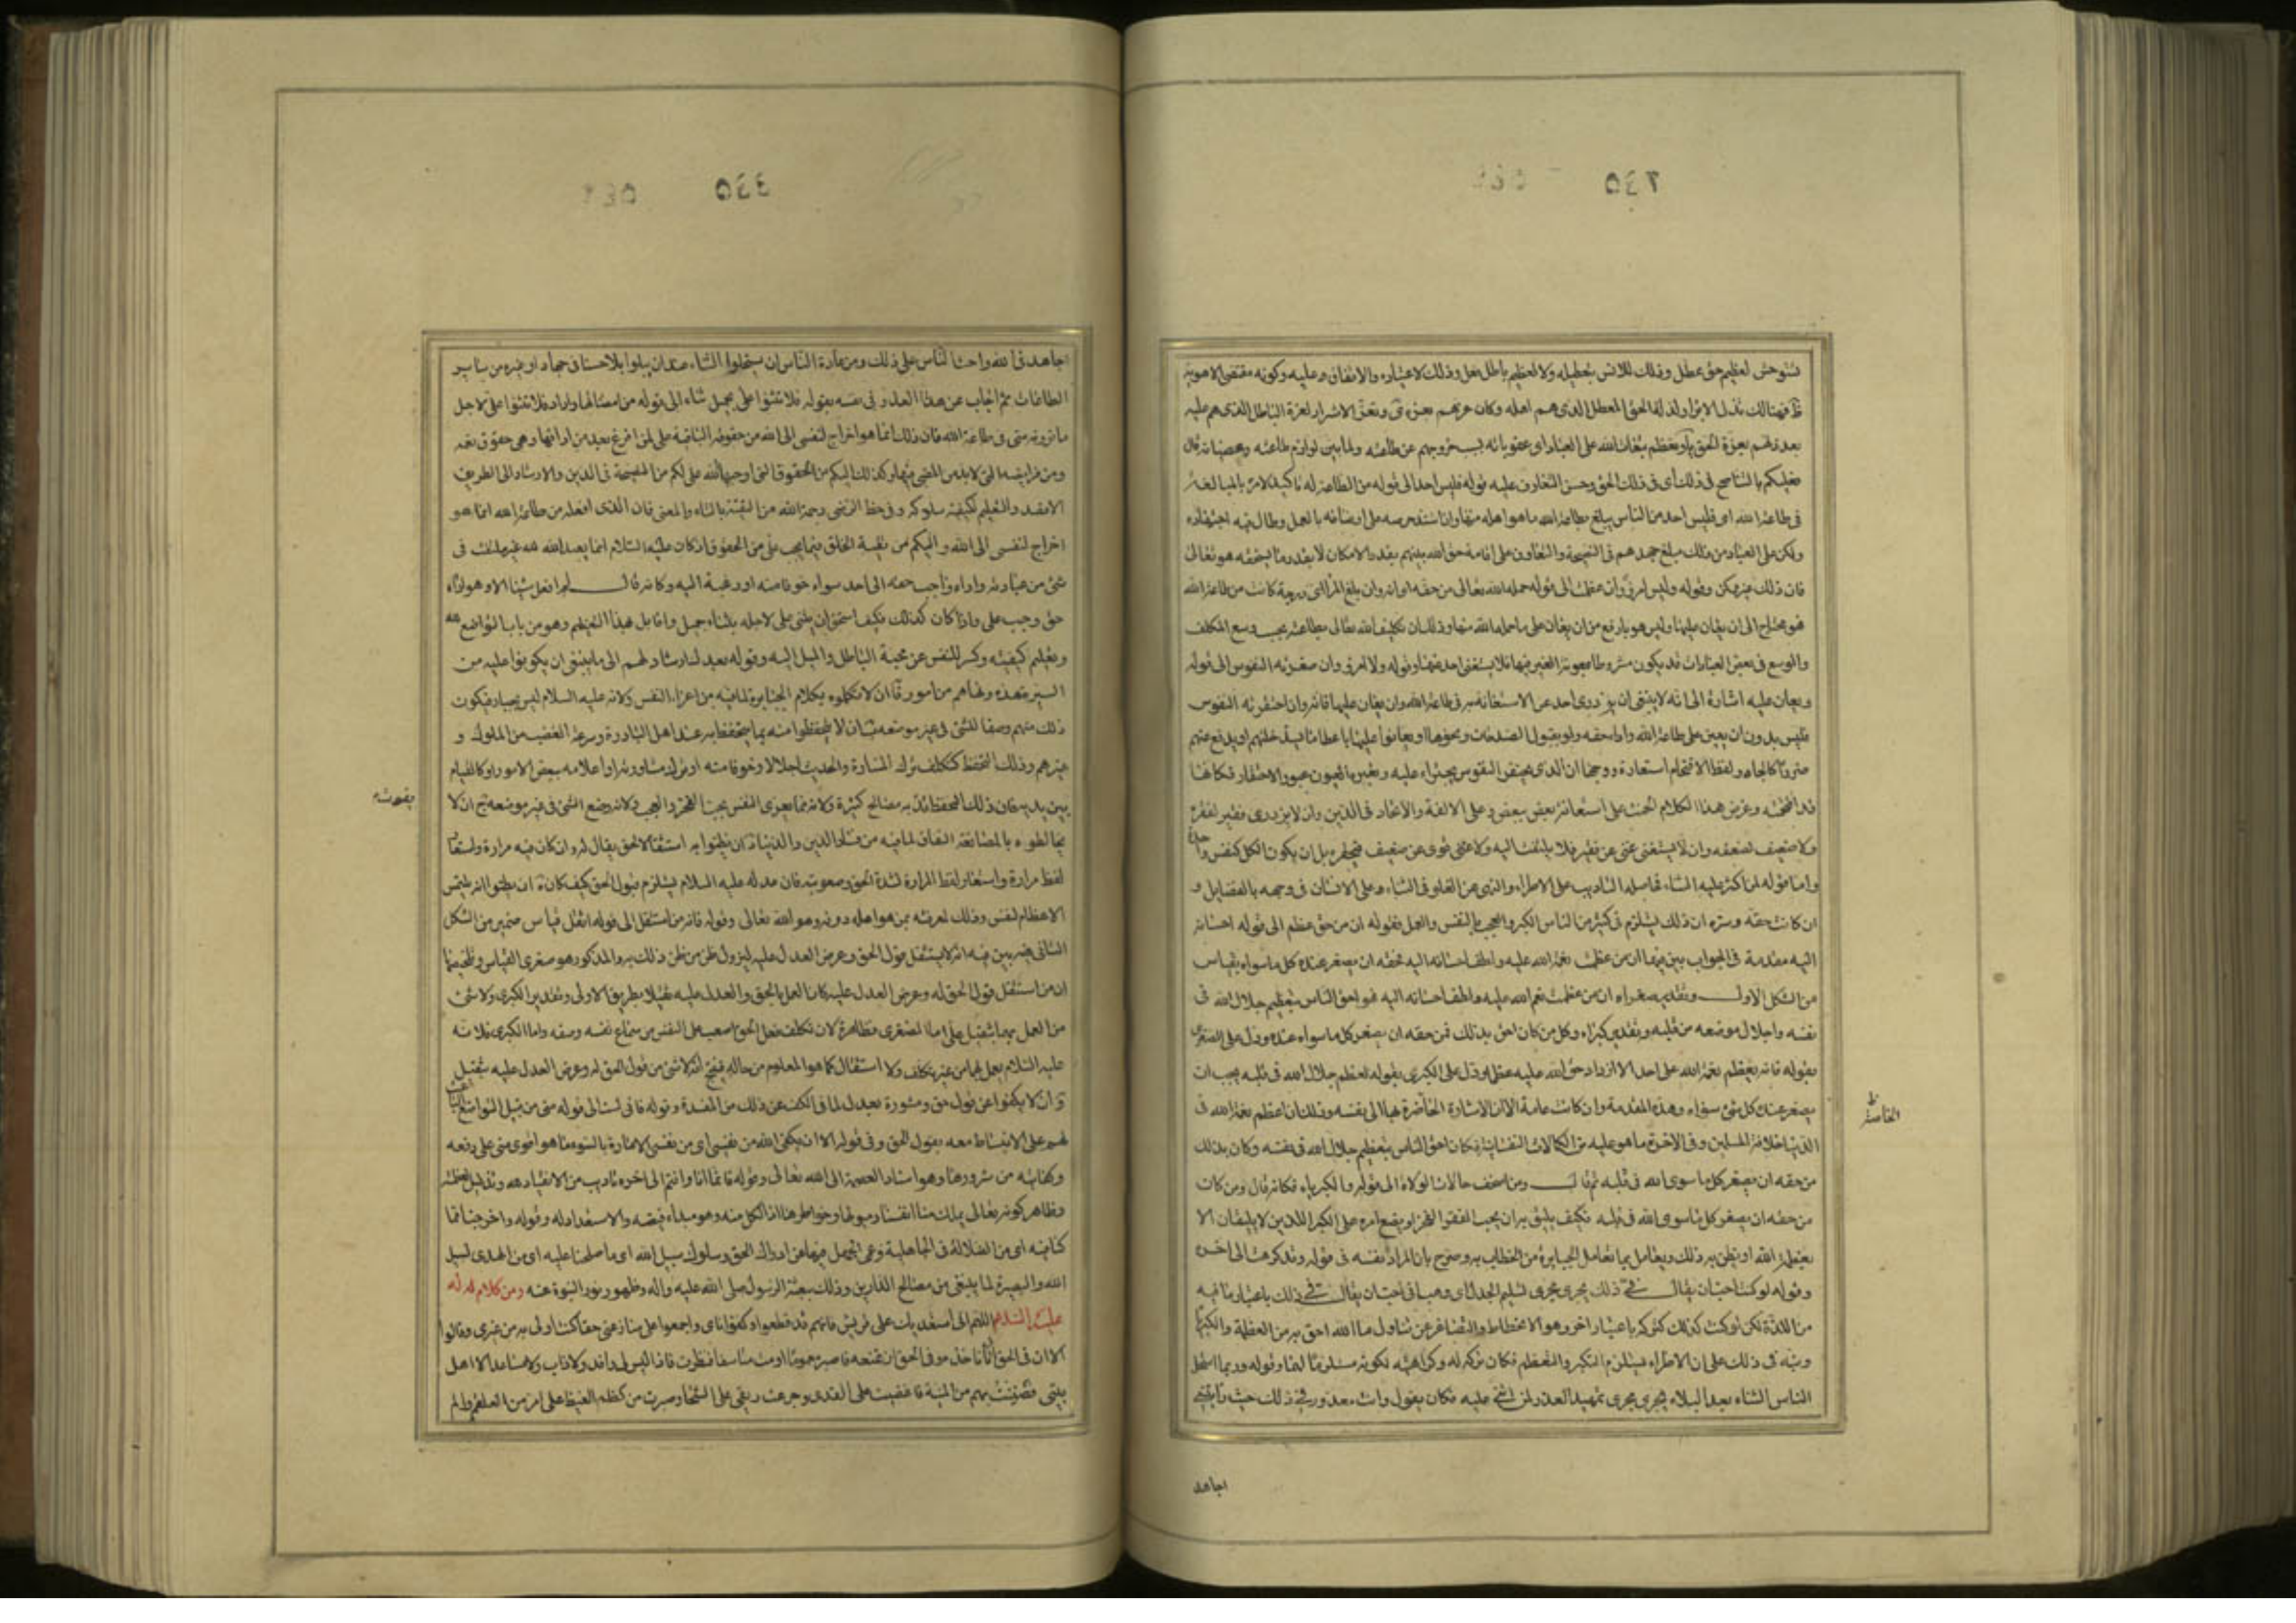 ٥٤٣
تستوحش لعظيم حق عطل وذلك للانس بتعطيله ولا لعظيم باطل فعل وذلك لاعتياده والاتفاق عليه وكونه مقتضى الاهوية
فهنالك تذل الابرار وتذل لذلة الحق المعطل الذى هم اهله وكان عزهم بعزته وتعز الاشرار لعزة الباطل الذى هم عليه
بعد ذلهم بعزة الحق وتعظم تبعات الله على العباد اى عقوباته بسبب خروجهم عن طاعته ولما بين لوازم طاعته وعصيانه قال
فعليكم بالتناصح فى ذلك اى فى ذلك الحق وحسن التعاون عليه قوله فليس احد الى قوله من الطاعة له تاكيد لامره بالمبالغة
فى طاعة الله اى فليس احد من الناس يبلغ بطاعة الله ما هو اهله منها وان اشتد حرصه على ارضائه بالعمل وطال فيه اجتهاده
ولكن على العباد من ذلك مبلغ جهدهم فى النصيحة والتعاون على اقامة حق الله بينهم بقدر الامكان لا بقدر ما يستحقه هو تعالى
فان ذلك غير ممكن وقوله وليس امرؤ وان عظمت الى قوله حمله الله تعالى من حقه اى انه وان بلغ المرء اى درجة كانت من طاعة الله
فهو محتاج الى ان يعان عليها وليس هو بارفع من ان يعان على ما حمله الله منها وذلك ان تكليف الله تعالى بطاعته بحسب وسع المكلف
والوسع فى بعض العبادات قد يكون مشروطا بمعونة الغير فيها فلا يستغنى احد عنها وقوله ولا امرؤ وان صغرته النفوس الى قوله
ويعان عليه اشارة الى انه لا ينبغى ان يزدرى احد عن الاستعانة به فى طاعة الله وان يعان عليها فانه وان احتقرته النفوس
فليس بدون ان يعين على طاعة الله واداء حقه ولو بقبول الصدقات ونحوها او يعان عليها باعطائها ليدفع عنهم
ضررا كالجاه ولفظ الاقتحام استعارة ووجهها ان الذى تحتقره النفوس يجترأ عليه وتعبره العيون عبور الاحتقار فكانها
قد اقتحمته وغرض هذا الكلام الحث على استعانة بعض ببعض وعلى الالفة والاتحاد فى الدين وان لا يزدرى فقير لفقره
ولا ضعيف لضعفه وان لا يستغنى غنى عن فقير فلا يلتفت اليه ولا قوى عن ضعيف فيحقره بل ان يكون الكل كنفس واحدة
واما قوله لمن اكثر عليه الثناء فحاصله التاديب على الاطراء والنهى عن الغلو فى الثناء على الانسان فى وجهه بالفضايل و
ان كانت حقه وسره ان ذلك يستلزم فى كثير من الناس الكبر والعجب بالنفس والعمل فقوله ان من حق عظم الى قوله احسانه
اليه مقدمة فى الجواب بين فيها ان من عظمت نعمة الله عليه ولطف احسانه اليه فحقه ان يصغر عنده كل ما سواه بقياس
من الشكل الاول وتقدير صغراه ان من عظمت نعم الله عليه ولطف احسانه اليه فهو احق الناس بتعظيم جلال الله فى
نفسه واجلال موضعه من قلبه وتقدير كبراه وكل من كان احق بذلك فمن حقه ان يصغر كل ما سواه عنده ودل على الصغرى
بقوله فانه لم تعظم نعمة الله على احد الا ازداد حق الله عليه عظما ودل على الكبرى بقوله لعظم جلال الله فى قلبه يجب ان
يصغر عنده كل شئ سواه وهذه المقدمة وان كانت عامة الا ان الاشارة الحاضرة بها الى نفسه وذلك ان اعظم نعم الله فى
الدنيا خلافة المسلمين وفى الاخرة ما هو عليه من الكمالات النفسانية فكان احق الناس بتعظيم جلال الله فى نفسه وكان بذلك
من حقه ان يصغر كل ما سوى الله فى قلبه ثم قال ومن اسخف حالات الولاة الى قوله والكبرياء فكانه قال ومن كان
من حقه ان يصغر كل ما سوى الله فى قلبه فكيف يليق به ان يحب الفخر او يضع امره على الكبر اللذين لا يليقان الا
بعظمة الله او يظن به ذلك ويعامل بما تعامل الجبابرة من الخطاب به وصرح بان المراد نفسه فى قوله وقد كرهت الى اخره
وقوله لو كنت احب ان يقال فى ذلك يجرى مجرى تسليم الجدل اى وهب انى احب ان يقال فى ذلك باعتبار ما فيه
من اللذة لكن لو كنت كذلك لتركته باعتبار اخر وهو الانحطاط والتصاغر عن تناول ما الله احق به من العظمة والكبرياء
ونبه فى ذلك على ان الاطراء يستلزم التكبر والتعظم فكان تركه له وكراهته لكونه مستلزما لهما وقوله وربما استحلى
الناس الثناء بعد البلاء يجرى مجرى تمهيد العذر لمن اثنى عليه فكان يقول وانت معذور فى ذلك حيث رايتنى
اجاهد
الخاصة
٥٤٤
اجاهد فى الله واحث الناس على ذلك ومن عادة الناس ان يستحلوا الثناء عند ان يبلوا بلاء حسنا فى جهاد او غيره من ساير
الطاعات ثم اجاب عن هذا العذر فى نفسه بقوله فلا تثنوا على بجميل ثناء الى قوله من امضائها واراد فلا تثنوا على لاجل
ما ترونه منى من طاعة الله فان ذلك انما هو اخراج لنفسى الى الله من حقوقه الباقية على لم افرغ بعد من ادائها وهى حقوق نعمه
ومن فرايضه التى لا بد من المضى فيها وكذلك اليكم من الحقوق التى اوجبها الله على لكم من النصيحة فى الدين والارشاد الى الطريق
الاقصد والتعليم لكيفية سلوكه وفى خط الرضى رحمة الله من التقية بالتاء والمعنى فان الذى افعله من طاعة الله انما هو
اخراج لنفسى الى الله واليكم من تقية الخلق فيما يجب على من الحقوق اذ كان عليه السلام انما يعبد الله لله غير ملتفت فى
شئ من عبادته واداء واجب حقه الى احد سواه خوفا منه او رغبة اليه وكانه قال لم افعل شيئا الا وهو اداء
حق وجب على واذا كان كذلك فكيف استحق ان يثنى على لاجله بثناء جميل واقابل بهذا التعظيم وهو من باب التواضع لله
وتعليم كيفيته وكسر للنفس عن محبة الباطل والميل اليه وقوله بعد ذلك ارشاد لهم الى ما ينبغى ان يكونوا عليه من
السيرة عنده ونهاهم عن امور ا ان لا يكلموه بكلام الجبابرة لما فيه من اعزاز النفس ولانه عليه السلام ليس بجبار فيكون
ذلك منهم وصفا للشئ فى غير موضعه ب ان لا يتحفظوا منه بما يتحفظ به عند اهل البادرة وسرعة الغضب من الملوك و
غيرهم وذلك التحفظ كتكلف ترك المسارة والحديث اجلالا وخوفا منه او ترك مشاورته او اعلامه ببعض الامور او كالقيام
بين يديه فان ذلك التحفظ يفوت به مصالح كثيرة ولانه مما يعرى النفس بحب الفخر والعجب ولانه وضع للشئ فى غير موضعه ج ان لا
يخالطوه بالمصانعة والنفاق لما فيه من فساد الدين والدنيا د ان لا يظنوا به استثقالا لحق يقال له وان كان فيه مرارة واستعار
لفظ مرارة واستعار لفظ المرارة لشدة الحق وصعوبته فان عدله عليه السلام يستلزم قبول الحق كيف كان ه ان لا يظنوا انه يلتمس
الاعظام لنفسه وذلك لمعرفته بمن هو اهله دونه وهو الله تعالى وقوله فانه من استثقل الى قوله اثقل قياس ضمير من الشكل
الثانى بين فيه انه لا يستثقل قول الحق وعرض العدل عليه ليزول ظن من ظن ذلك به والمذكور هو صغرى القياس وتلخيصها
ان من استثقل قول الحق له وعرض العدل عليه كان العمل بالحق والعدل عليه ثقيلا بطريق الاولى وتقدير الكبرى ولا شئ
من العمل بهما بثقيل على اما الصغرى فظاهرة لان تكلف فعل الحق اصعب على النفس من سماع نفسه وصفه واما الكبرى فلانه
عليه السلام يعمل بهما من غير تكلف ولا استثقال كما هو المعلوم من حاله فينتج انه لا شئ من قول الحق له وعرض العدل عليه بثقيل
و ان لا يكفوا عن قول حق ومشورة بعدل لما فى الكف عن ذلك من المفسدة وقوله فانى لست الى قوله منى من قبيل التواضع
لهم على الانبساط معه بقول الحق وفى قوله الا ان يكفى الله من نفسى اى من نفسى الامارة بالسوء ما هو اقوى منى على دفعه
وكفايته من شرورها وهو اسناد العصمة الى الله تعالى وقوله فانما انا وانتم الى اخره تاديب من الانقياد لله وتذليل لعظمته
وظاهر كونه تعالى يملك منا انفسنا وميولها وخواطرها اذ الكل منه وهو مبداء فيضه والاستعداد له وقوله واخرجنا مما
كنا فيه اى من الضلالة فى الجاهلية وعمى الجهل فيها عن ادراك الحق وسلوك سبيل الله اى ما صلحنا عليه اى من الهدى لسبيل
الله والبصيرة لما ينبغى من مصالح الدارين وذلك ببعثة الرسول صلى الله عليه واله وظهور نور النبوة عنه ومن كلام له
عليه السلام اللهم انى استعديك على قريش فانهم قد قطعوا رحمى وكفئوا اناى واجمعوا على منازعتى حقا كنت اولى به من غيرى وقالوا
الا ان فى الحق ان تاخذه وفى الحق ان تمنعه فاصبر مغموما او مت متاسفا فنظرت فاذا ليس لى رافد ولا ذاب ولا مساعد الا اهل
بيتى فضننت بهم عن المنية فاغضيت على القذى وجرعت ريقى على الشجا وصبرت من كظم الغيظ على امر من العلقم والم